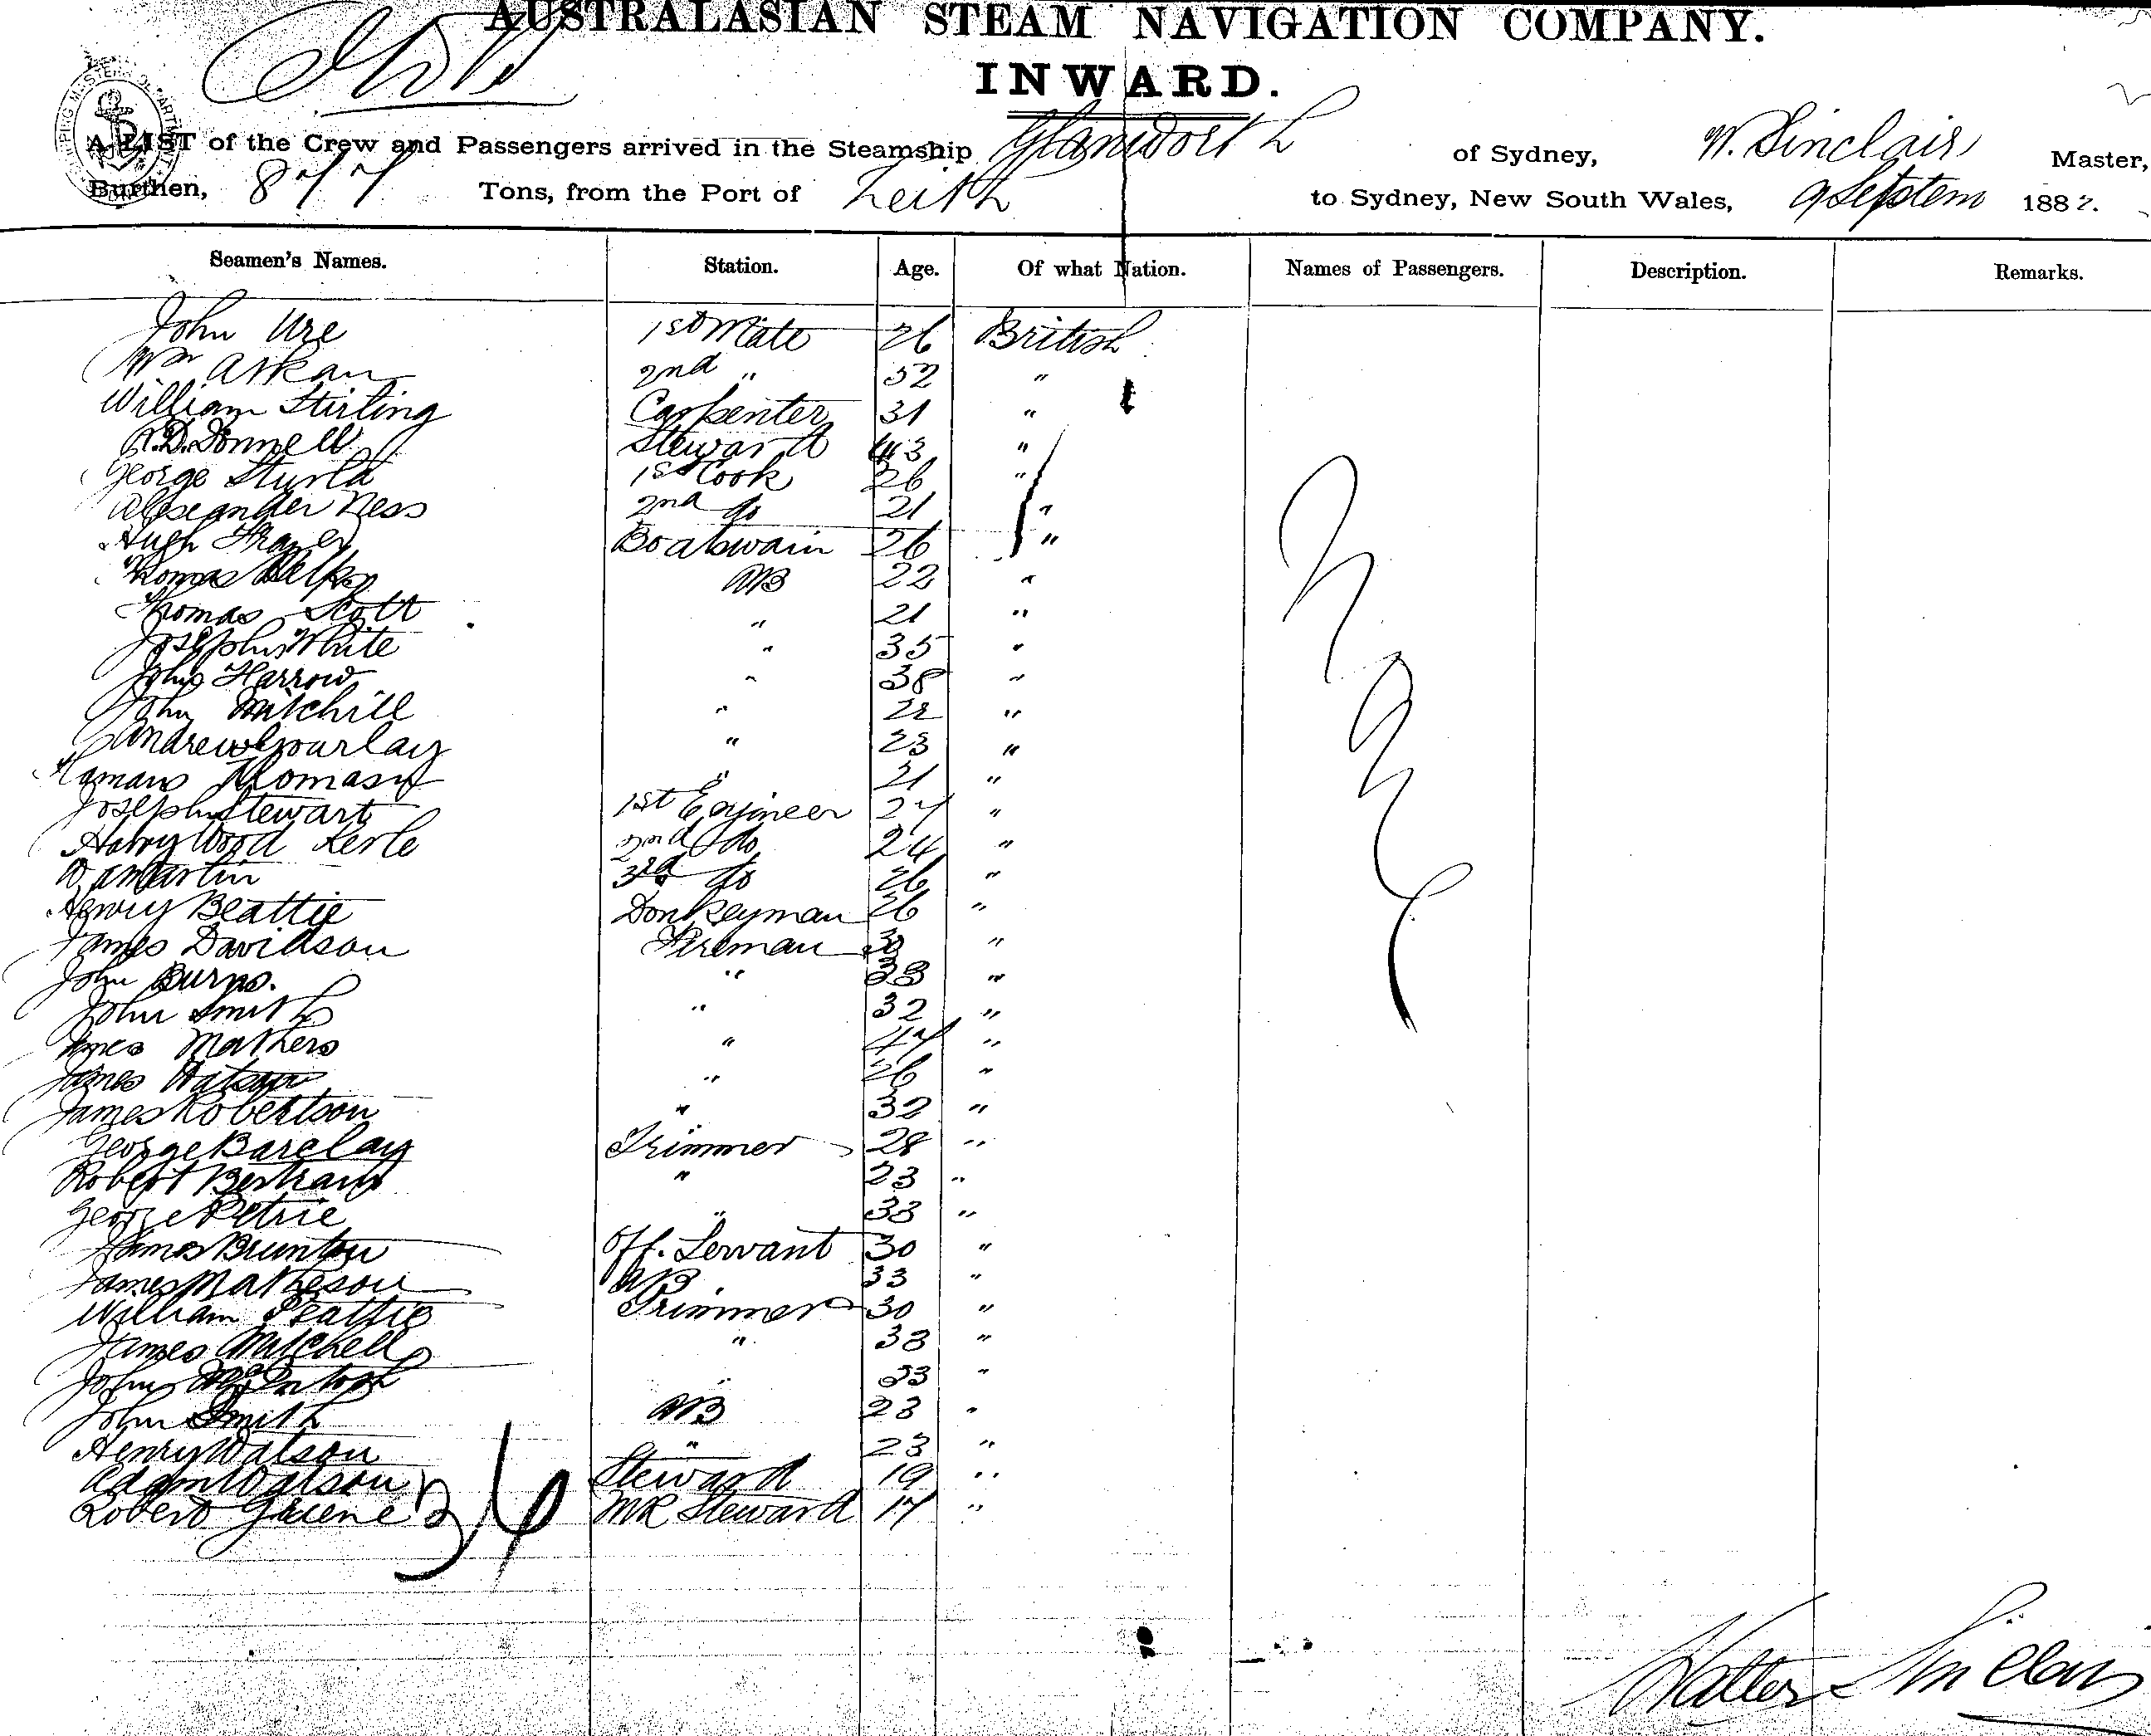 AUSTRALASIAN STEAM NAVIGATION COMPANY.
INWARD.
A LIST of the Crew and Passengers arrived in the Steamship Glamis of Sydney, W. Sinclair Master,
Burthen, 877 Tons, from the Port of Leith to Sydney, New South Wales, 9 Septem 1882.
Seamen's Names. Station. Age. Of what Nation. Names of Passengers. Description. Remarks.
John Ure 1st Mate 26 British
Wm Askan 2nd " 52 "
William Stirling Carpenter 31 "
R.D. Donnell Steward 43 "
George 1st Cook 26 "
Alexander Ness 2nd do 21 "
Hugh Frazer Boatswain 26 "
Thomas AB 22 "
Thomas Scott " 21 "
Joseph White " 35 "
John Harrow " 38 "
John Mitchill " 22 "
Andrew Gourlay " 23 "
Thomas " 21 "
Joseph Stewart 1st Engineer 27 "
Harry Wood Kerle 2nd do 24 "
Martin 3rd do 26 "
Henry Beattie Donkeyman 26 "
James Davidson Fireman 30 "
John Burns. " 38 "
John Smith " 32 "
James Mathers " 47 "
James Watson " 26 "
James Robertson " 32 "
George Barclay Trimmer 28 "
Robert Bertram " 23 "
George Petrie " 33 "
James Brunton Off. Servant 30 "
James Matheson AB 33 "
William Beattie Trimmer 30 "
James Mitchell " 33 "
John McIntosh " 33 "
John Smith AB 23 "
Henry Watson " 23 "
Adam Watson Steward 19 "
Robert Greene MR Steward 17 "
36
Walter Sinclair